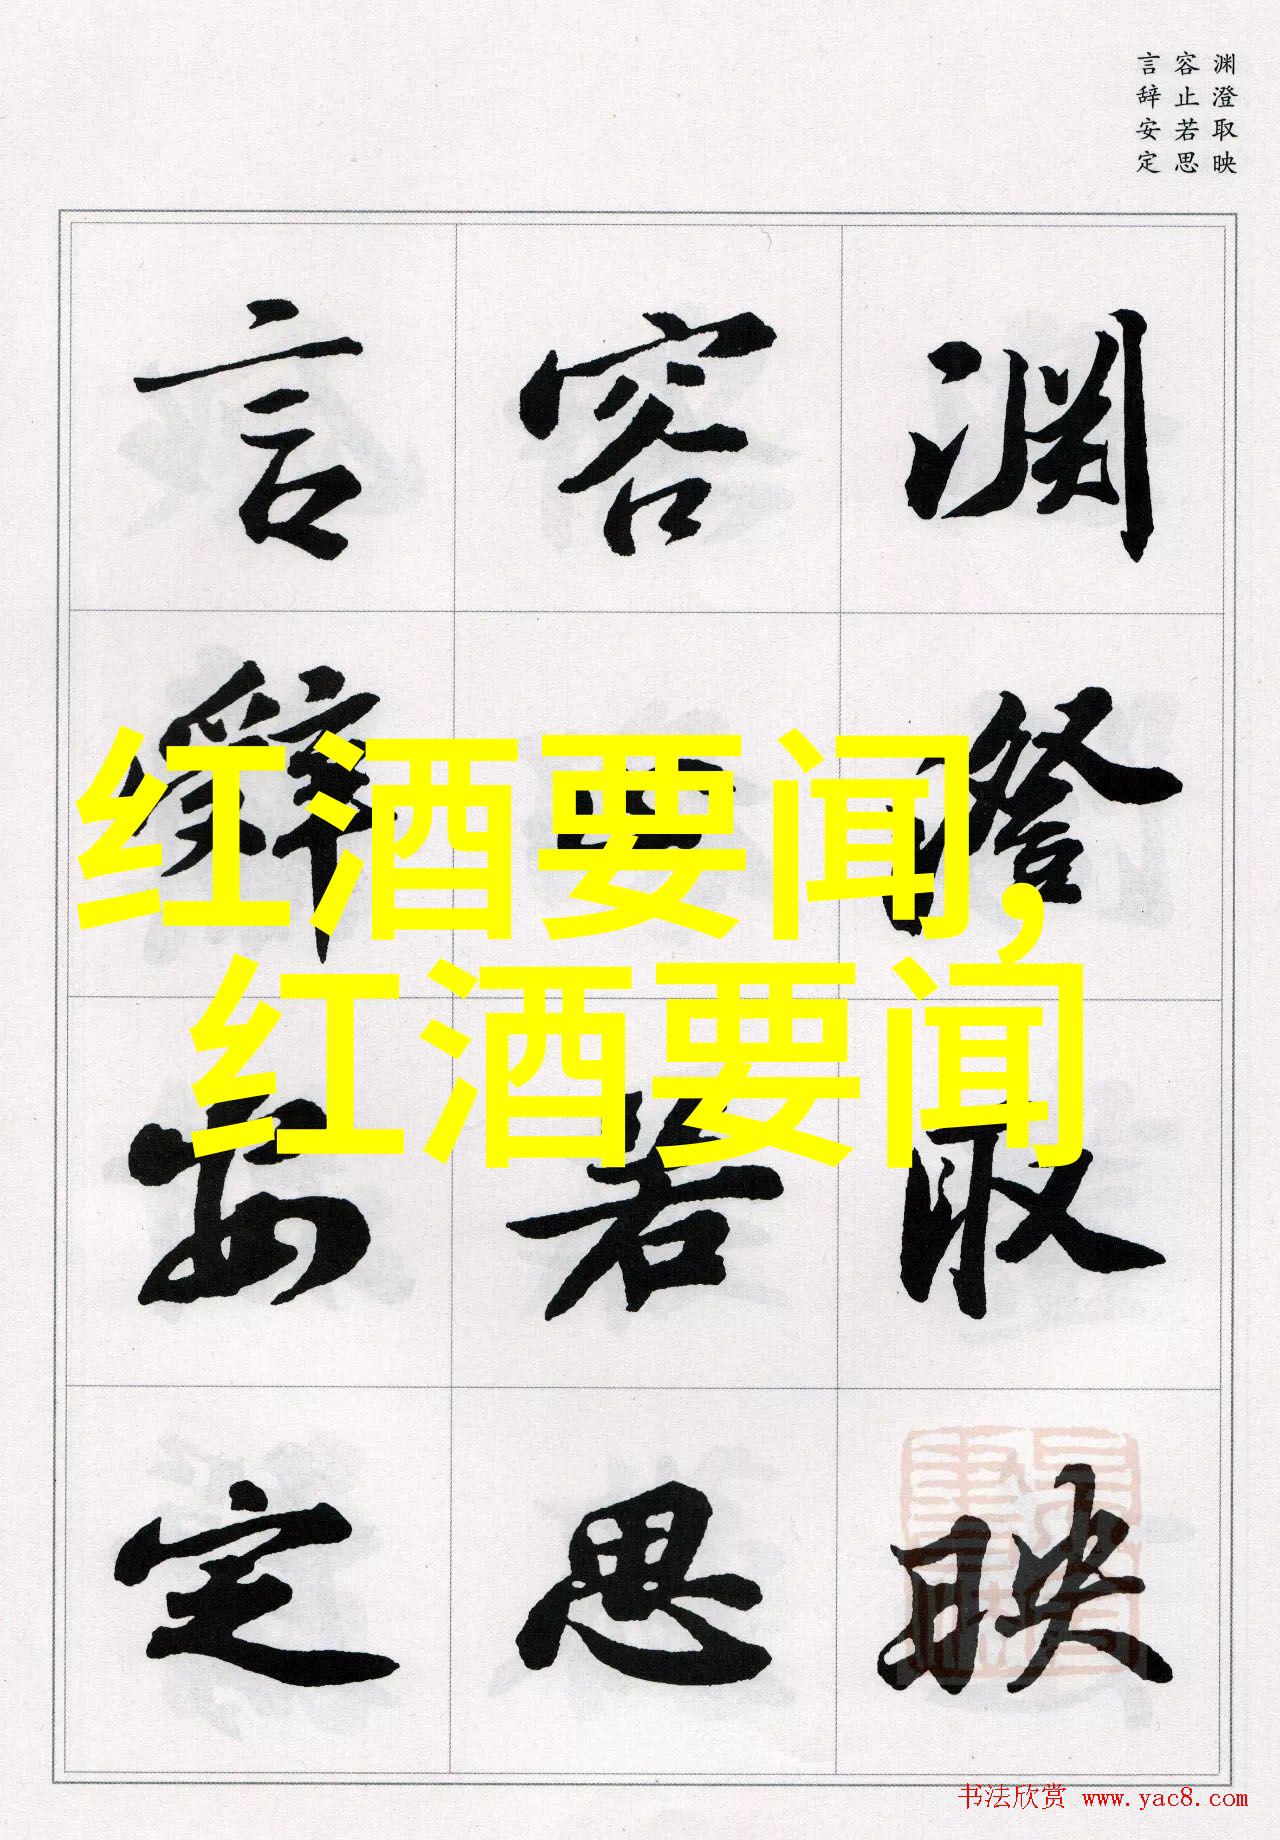 渊澄取映
容止若思
言辞安定
渊澄取映
容止若思
言辞安定
红酒要闻,
红酒要闻
书法欣赏 www.yac8.com